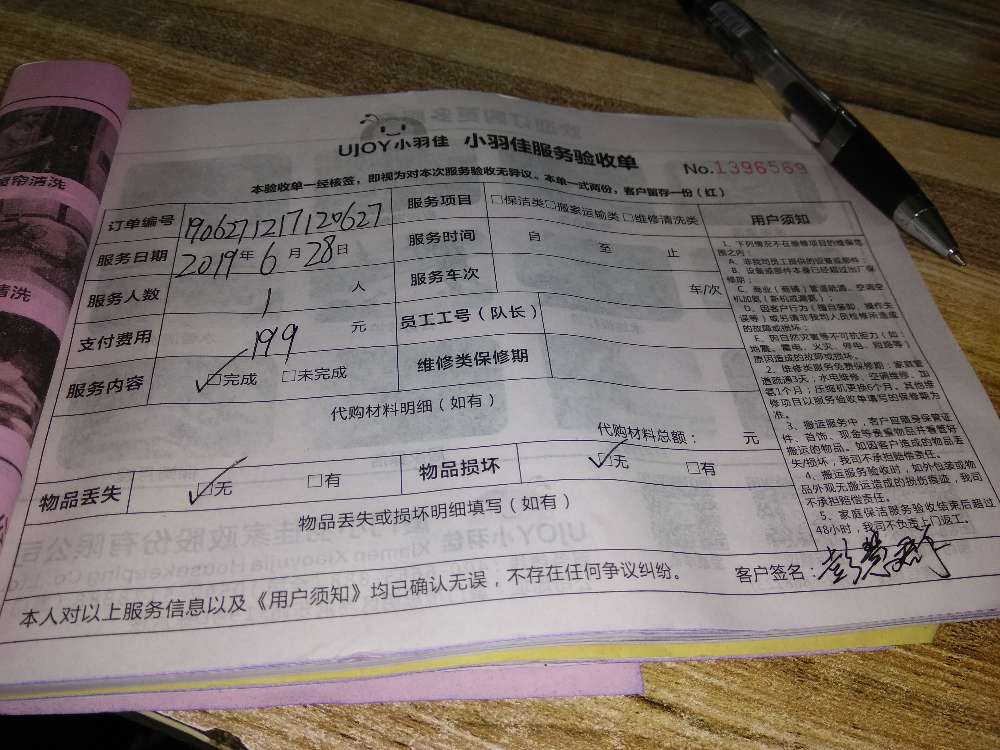 UJOY小羽佳 小羽佳服务验收单
No.1396569
本验收单一经核签，即视为对本次服务验收无异议。本单一式两份，客户留存一份（红）
订单编号 190627121712062​7
服务项目 □保洁类□搬家运输类 □维修清洗类
服务日期 2019年6月28日
服务时间 自 至 止
服务人数 1 人
服务车次 车/次
支付费用 199 元
员工工号（队长）
服务内容 ☑完成 □未完成
维修类保修期
代购材料明细（如有）
代购材料总额： 元
物品丢失 ☑无 □有
物品损坏 ☑无 □有
物品丢失或损坏明细填写（如有）
本人对以上服务信息以及《用户须知》均已确认无误，不存在任何争议纠纷。
客户签名：
用户须知
1、下列情况不在维修项目的维保范
围之内：
A、非我司员工提供的设备或部件
B、设备或部件本身已经超过出厂保
修期；
C、商业（商铺）管道疏通、空调安
机加氨（新机或漏氨）；
D、因客户行为（擅自装卸、操作失
误等）或另请非我司人员检修所造成
的故障或损坏；
E、因自然灾害等不可抗拒力（如：
地震、雷电、火灾、停电、短路等）
原因造成的故障或损坏。
2、维修类服务免费保修期：家庭管
道疏通3天，水电维修、空调维修、加
氨1个月；压缩机更换6个月。其他维
修项目以服务验收单填写的保修期为
准。
3、搬运服务中，客户应随身保管证
件、首饰、现金等贵重物品并看管好
搬运的物品。如因客户造成的物品丢
失/损坏，我司不承担赔偿责任。
4、搬运服务验收时，如外包装或物
品外观无搬运造成的损伤痕迹，我司
不承担赔偿责任。
5、家庭保洁服务验收结束后超过
48小时，我司不负责上门返工。
窗帘清洗
清洗